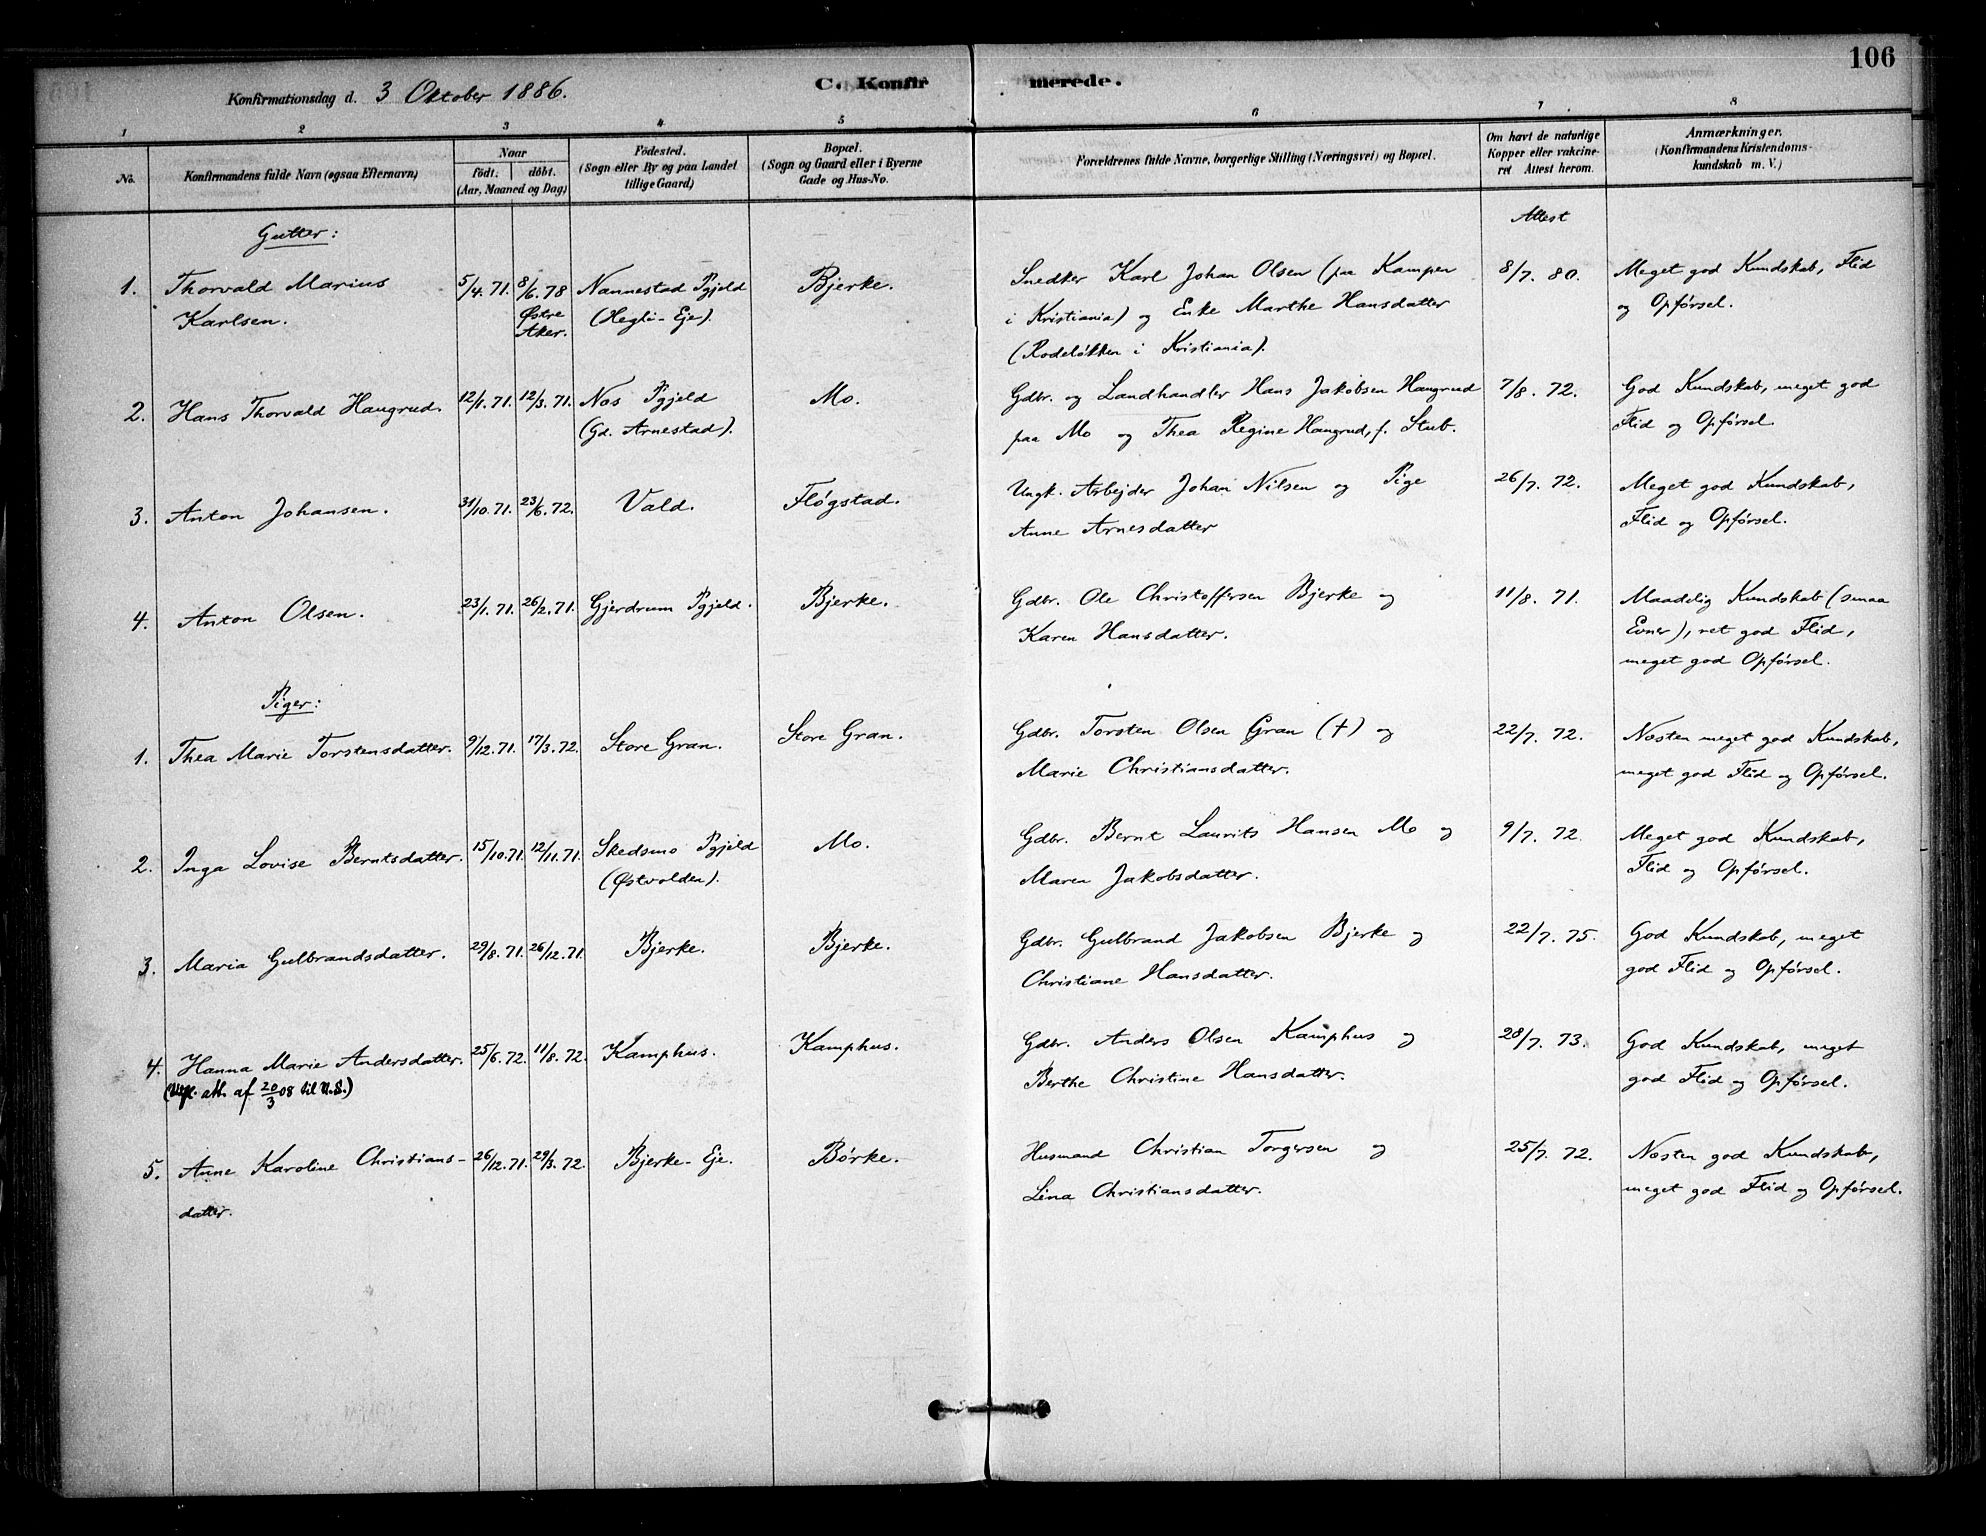 106
Konfirmationsdag d. 3 Oktober 1886.
C. Konfirmerede.
1 2 3 4 5 6 7 8
No.
Konfirmandens fulde Navn (ogsaa Efternavn)
Naar
födt. döbt.
(Aar, Maaned og Dag)
Födested.
(Sogn eller By og paa Landet
tillige Gaard)
Bopæl.
(Sogn og Gaard eller i Byerne
Gade og Hus-No.
Forældrenes fulde Navne, borgerlige Stilling (Næringsvei) og Bopæl.
Om havt de naturlige
Kopper eller vakcine-
ret Attest herom.
Anmærkninger.
(Konfirmandens Kristendoms-
kundskab m. V.)
Attest
Gutter:
1. Thorvald Marius 5/4. 71. 8/6. 78 Nannestad Pgjeld Bjerke. Snedker Karl Johan Olsen (paa Kampen 8/7. 80. Meget god Kundskab, Flid
Karlsen. Østre (Hegli-Eje). i Kristiania) og Enke Marthe Hansdatter og Opførsel.
Aker. (Rodeløkken i Kristiania).
2. Hans Thorvald Haugrud. 12/1. 71. 12/3. 71. Nes Pgjeld Mo. Gdbr. og Landhandler Hans Jakobsen Haugrud 7/8. 72. God Kundskab, meget god
(Gd. Arnestad). paa Mo og Thea Regine Haugrud, f. Stub. Flid og Opførsel.
3. Anton Johansen. 31/10. 71. 23/6. 72. Vald. Fløgstad. Ungk. Arbejder Johan Nilsen og Pige 26/7. 72. Meget god Kundskab,
Anne Arnesdatter Flid og Opførsel.
4. Anton Olsen. 23/1. 71. 26/2. 71. Gjerdrum Pgjeld. Bjerke. Gdbr. Ole Christoffersen Bjerke og 11/8. 71. Maadelig Kundskab (smaa
Karen Hansdatter. Evner), ret god Flid,
meget god Opførsel.
Piger:
1. Thea Marie Torstensdatter. 9/12. 71. 17/3. 72. Store Gran. Store Gran. Gdbr. Torsten Olsen Gran (†) og 22/7. 72. Næsten meget god Kundskab,
Marie Christiansdatter. meget god Flid og Opførsel.
2. Inga Lovise Berntsdatter. 15/10. 71. 12/11. 71. Skedsmo Pgjeld Mo. Gdbr. Bernt Laurits Hansen Mo og 9/7. 72. Meget god Kundskab,
(Østvolden). Maren Jakobsdatter. Flid og Opførsel.
3. Maria Gulbrandsdatter. 29/8. 71. 26/12. 71. Bjerke. Bjerke. Gdbr. Gulbrand Jakobsen Bjerke og 22/7. 75. God Kundskab, meget
Christiane Hansdatter. god Flid og Opførsel.
4. Hanna Marie Andersdatter. 25/6. 72. 11/8. 72. Kamphus. Kamphus. Gdbr. Anders Olsen Kamphus og 28/7. 73. God Kundskab, meget
att. af 20/3 08 til U.S.) Berthe Christine Hansdatter. god Flid og Opførsel.
5. Anne Karoline Christians- 26/12. 71. 29/3. 72. Bjerke-Eje. Børke. Husmand Christian Torgersen og 25/7. 72. Næsten god Kundskab,
datter. Lina Christiansdatter. meget god Flid og Opførsel.